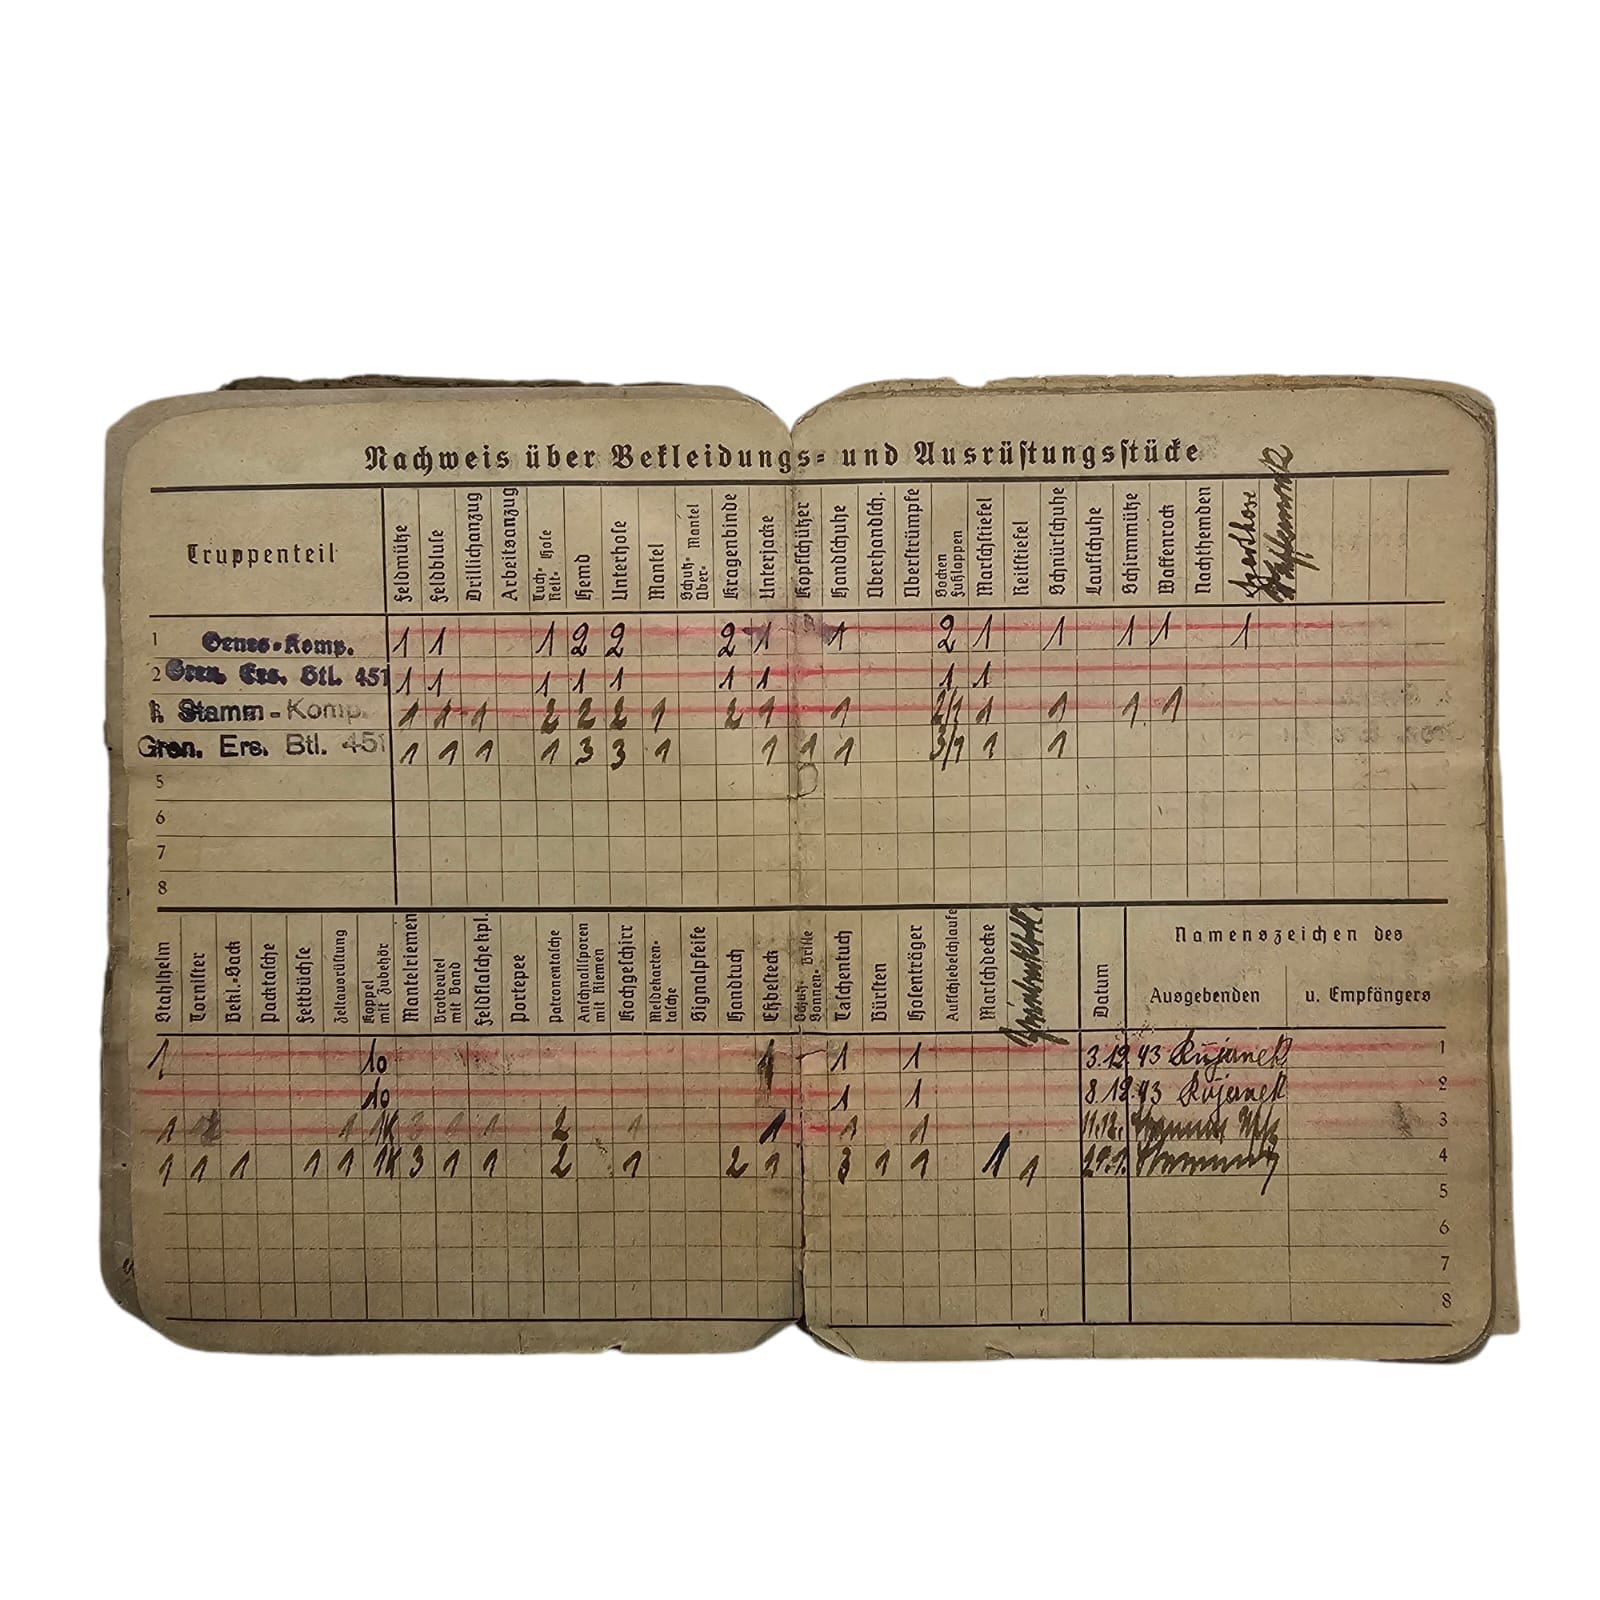 Nachweis über Bekleidungs- und Ausrüstungsstücke
Truppenteil
Feldmütze
Feldbluse
Drillichanzug
Arbeitsanzug
Tuch- Hose
Reit-
Hemd
Unterhose
Mantel
Schutz- Mantel
Über-
Kragenbinde
Unterjacke
Kopfschützer
Handschuhe
Überhandsch.
Überstrümpfe
Socken
Fußlappen
Marschstiefel
Reitstiefel
Schnürschuhe
Laufschuhe
Schirmmütze
Waffenrock
Nachthemden
1 Genes-Komp. 1 1 1 2 2 2 1 1 2 1 1 1 1 1
2 Gren. Ers. Btl. 451 1 1 1 1 1 1 1 1 1
1. Stamm-Komp. 1 1 1 2 2 2 1 2 1 1 2/1 1 1 1 1
Gren. Ers. Btl. 451 1 1 1 1 3 3 1 1 1 1 3/1 1 1
5
6
7
8
Stahlhelm
Tornister
Bekl.-Sack
Packtasche
Fettbüchse
Zeltausrüstung
Koppel
mit Zubehör
Mantelriemen
Brotbeutel
mit Band
Feldflasche kpl.
Portepee
Patronentasche
Anschnallsporen
mit Riemen
Kochgeschirr
Meldekarten-
tasche
Signalpfeife
Handtuch
Eßbesteck
Schutz- Brille
Sonnen-
Taschentuch
Bürsten
Hosenträger
Aufschiebeschlaufe
Marschdecke
Datum
Namenszeichen des
Ausgebenden u. Empfängers
1 1o 1 1 1 3.12.43 1
1o 1 1 8.12.43 2
1 1 1K 3 1 1 2 1 1 1 1 11.12. 3
1 1 1 1 1 1K 3 1 1 2 1 2 1 3 1 1 1 1 4
5
6
7
8